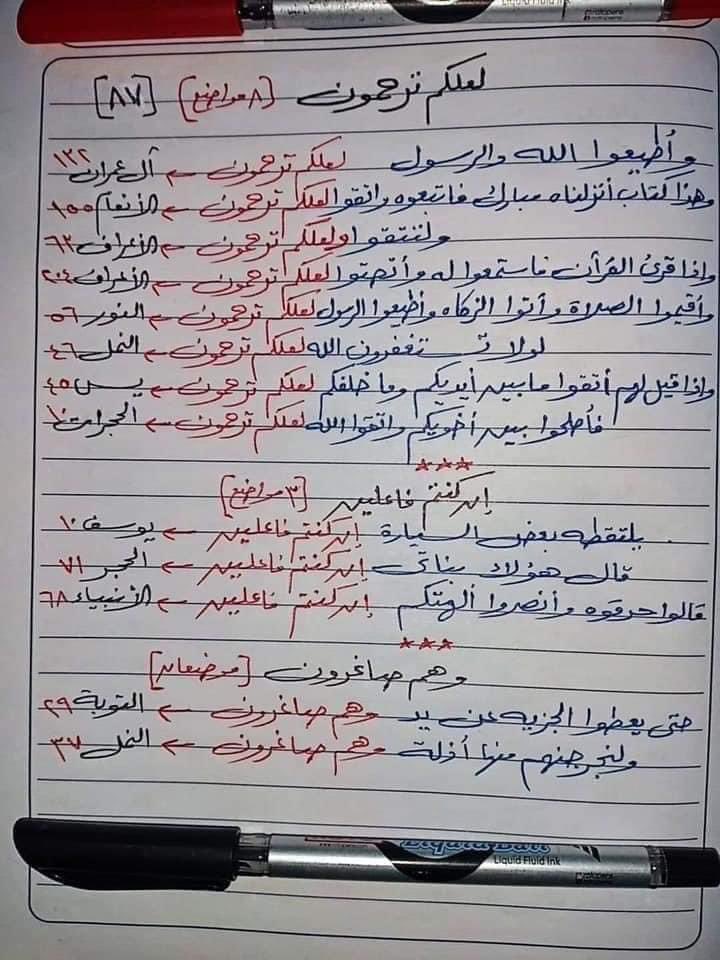 Liquid Fluid Ink
rolopens
rolopens
لعلكم ترحمون [٨ مواضع] [٨٧]
وأطيعوا الله والرسول لعلكم ترحمون ← آل عمران ١٣٢
وهذا كتاب أنزلناه مبارك فاتبعوه واتقوا لعلكم ترحمون ← الأنعام ١٥٥
ولتتقوا ولعلكم ترحمون ← الأعراف ٦٣
وإذا قرئ القرآن فاستمعوا له وأنصتوا لعلكم ترحمون ← الأعراف ٢٠٤
وأقيموا الصلاة وأتوا الزكاه وأطيعوا الرسول لعلكم ترحمون ← النور ٥٦
لولا تستغفرون الله لعلكم ترحمون ← النمل ٤٦
وإذا قيل لهم أتقوا ما بين أيديكم وما خلفكم لعلكم ترحمون ← يس ٤٥
فأصلحوا بين أخويكم واتقوا الله لعلكم ترحمون ← الحجرات ١٠
***
إن كنتم فاعلين [٣ مواضع]
يلتقطه بعض السيارة إن كنتم فاعلين ← يوسف ١٠
قال هؤلاء بناتى إن كنتم فاعلين ← الحجر ٧١
قالوا حرقوه وأنصروا ألهتكم إن كنتم فاعلين ← الأنبياء ٦٨
***
وهم صاغرون [موضعان]
حتى يعطوا الجزيه عن يد وهم صاغرون ← التوبة ٢٩
ولنخرجنهم منها أذلة وهم صاغرون ← النمل ٣٧
Liquid Ball
Liquid Fluid Ink
rolopens